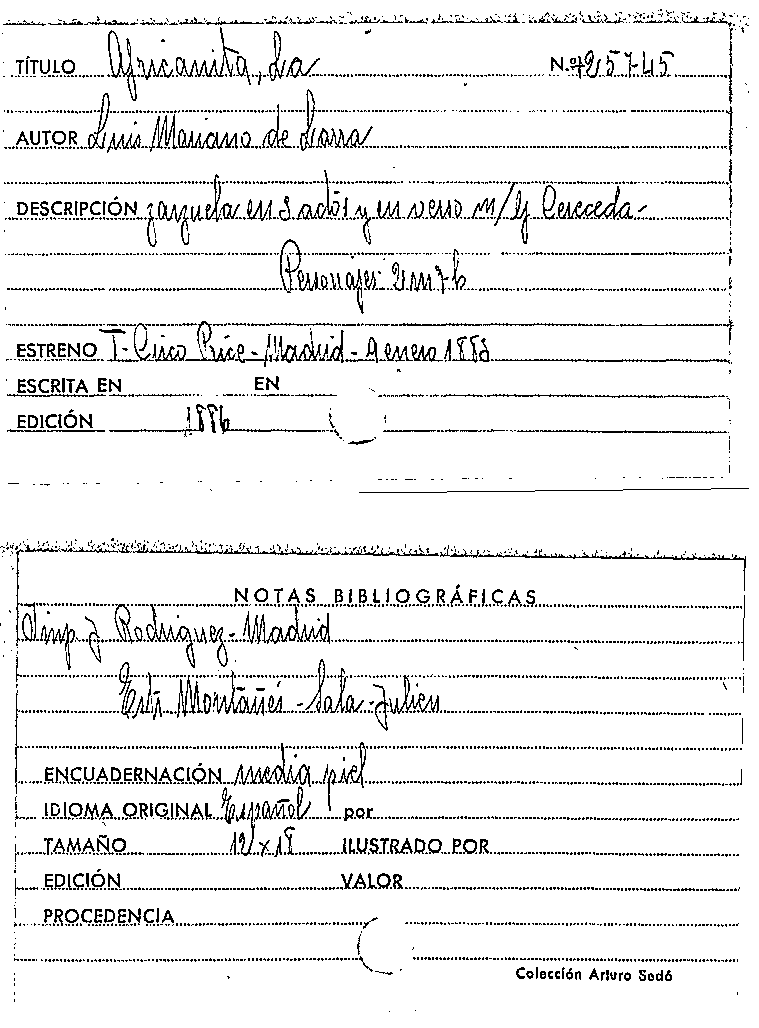 TÍTULO Africanita, La N.º 25745
AUTOR Luis Mariano de Larra
DESCRIPCIÓN zarzuela en 3 actos y en verso m/ Cereceda-
Personajes: 2m 7h
ESTRENO T- Circo Price - Madrid - 9 enero 1883
ESCRITA EN EN
EDICIÓN 1886
NOTAS BIBLIOGRÁFICAS
Imp J Rodriguez - Madrid
Estr Montañés - Sala - Julien
ENCUADERNACIÓN media piel
IDIOMA ORIGINAL Español por
TAMAÑO 12 x 18 ILUSTRADO POR
EDICIÓN VALOR
PROCEDENCIA
Colección Arturo Sedó